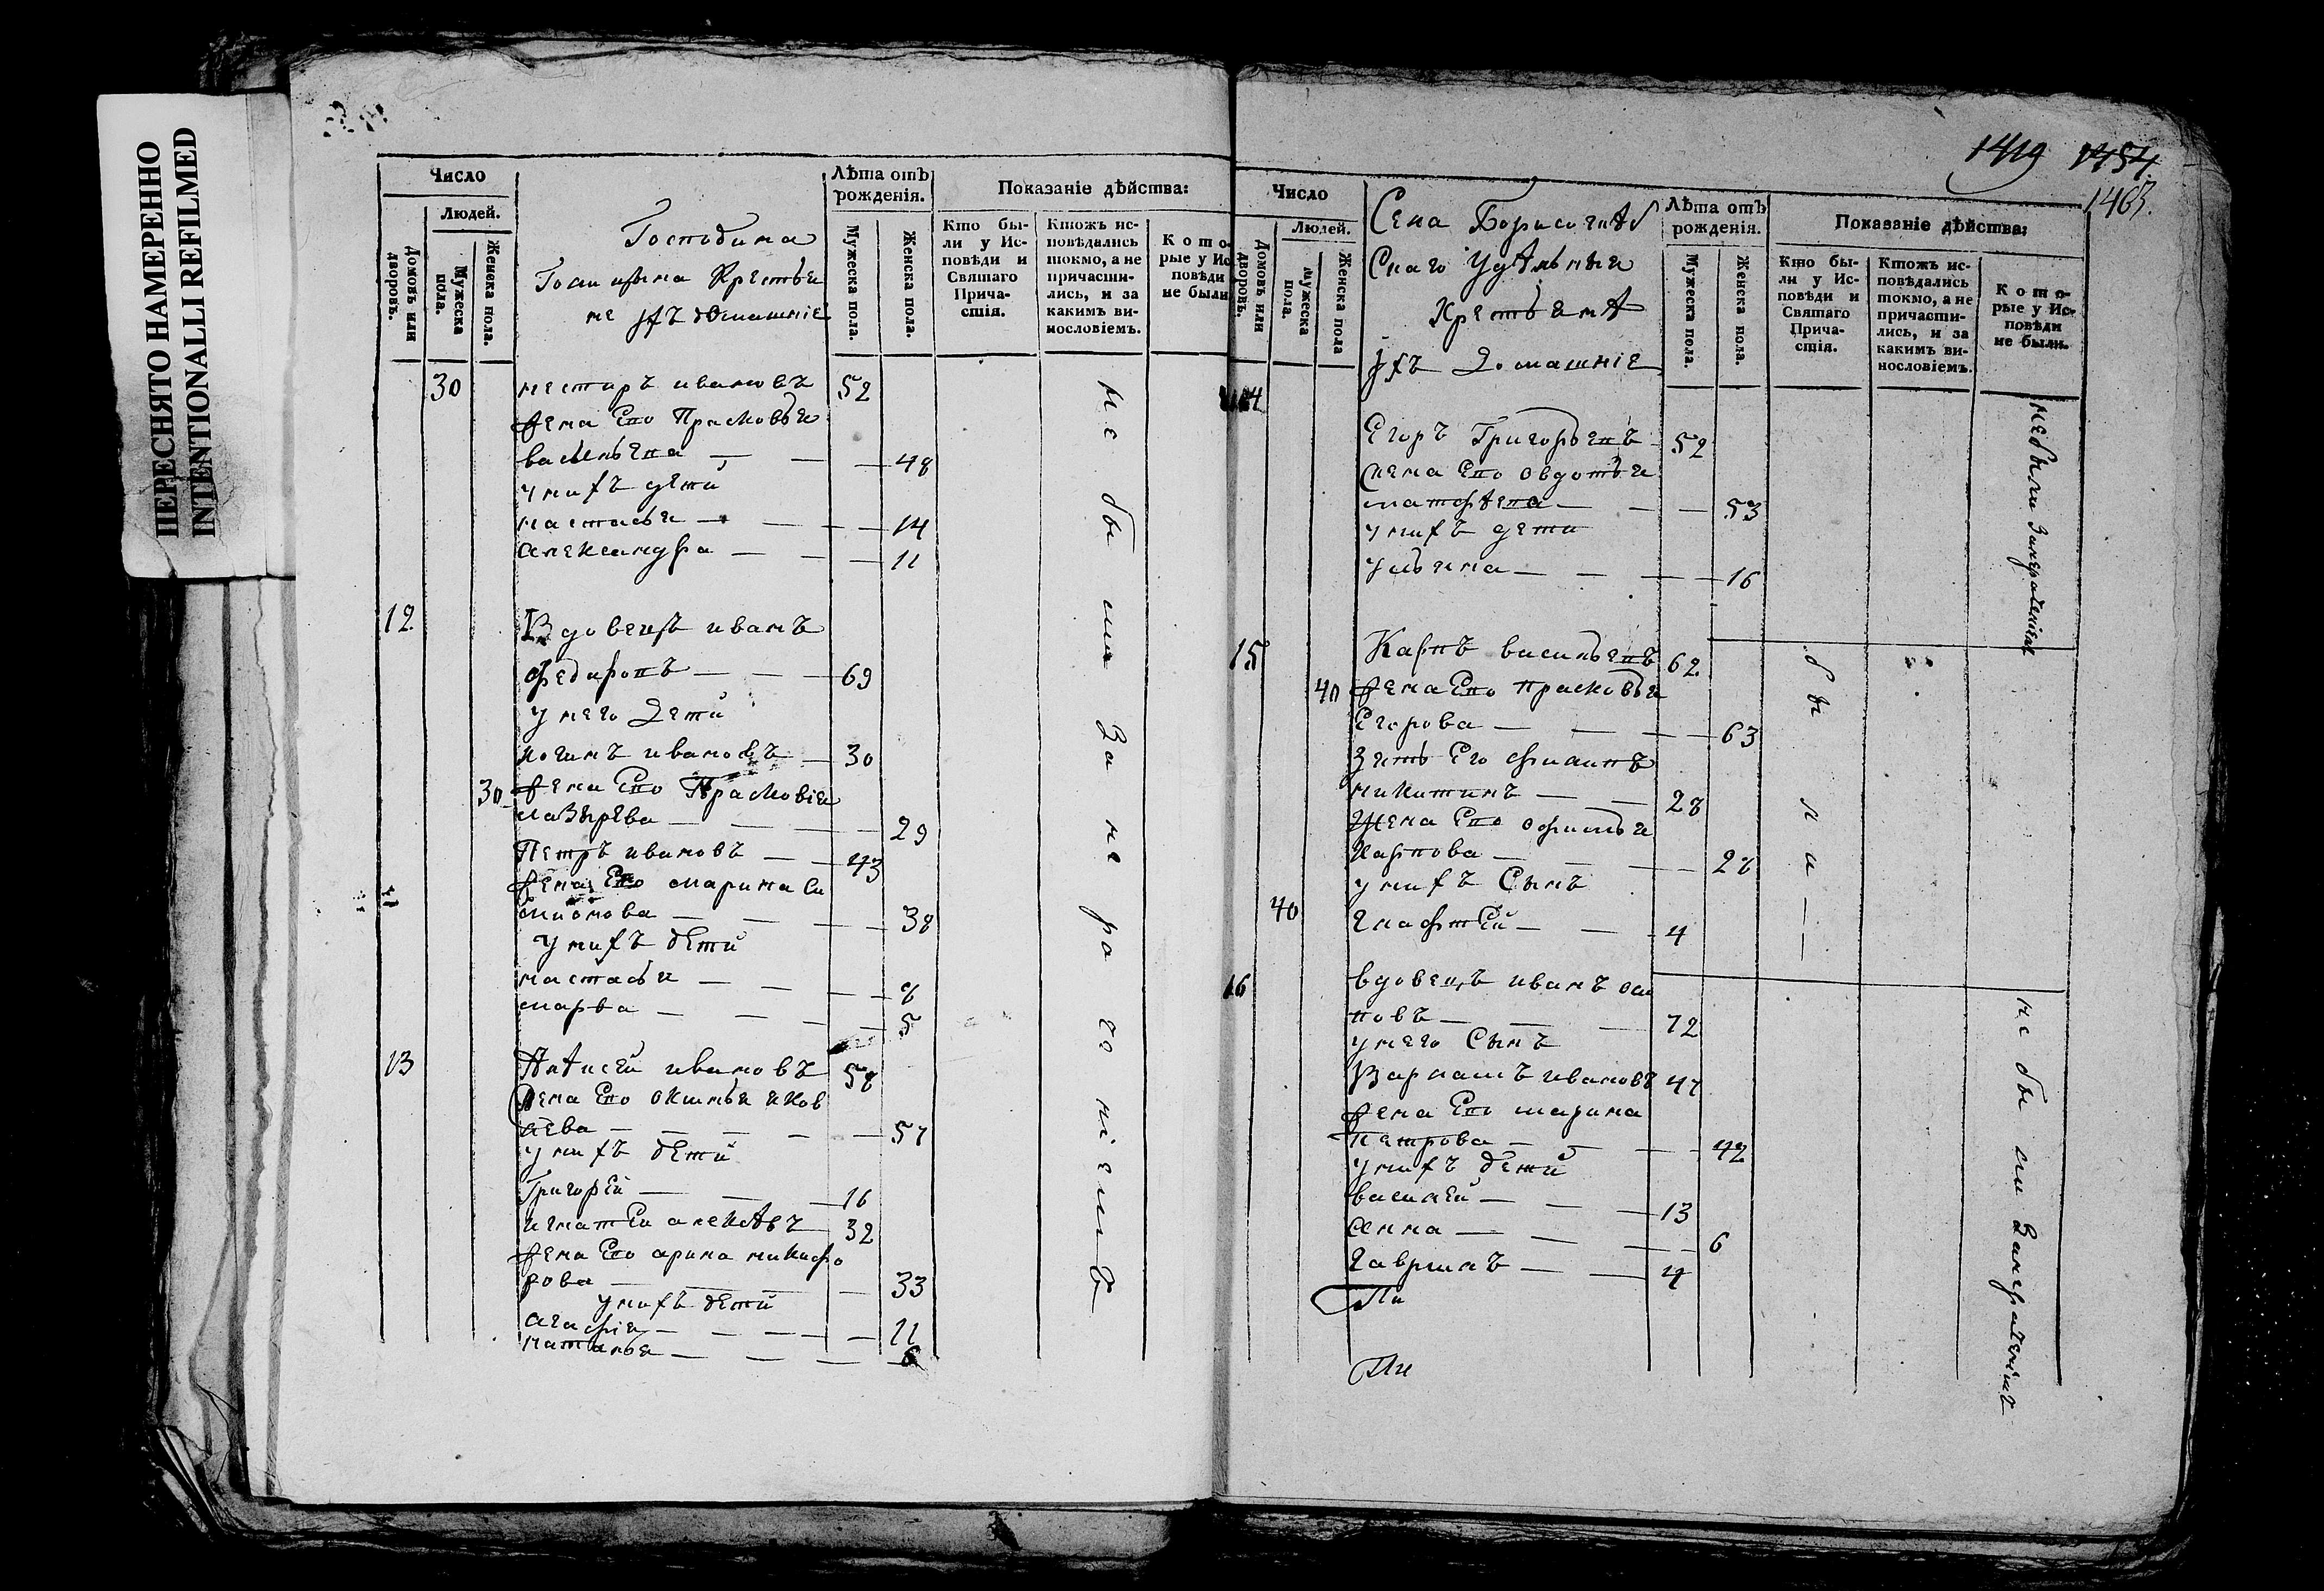 ПЕРЕСНЯТО НАМЕРЕННО
INTENTIONALLI REFILMED
Число
Людей.
Домовъ или дворовъ.
Мужеска пола.
Женска пола.
Господина
Крестья
не ихъ домашніе
Лѣта отъ рожденія.
Мужеска пола.
Женска пола.
Показаніе дѣйства:
Кто бы-
ли у Ис-
повѣди и
Святаго
Прича-
стія.
Ктожъ ис-
повѣдались
токмо, а не
причасти-
лись, и за
какимъ ви-
нословіемъ.
Кото-
рые у Ис-
повѣди
не были
30 нестиръ ивановъ 52
жена Его Прасковья
васильева — 48
у нихъ дети
настасья — 14
александра — 11
12 Вдовецъ иванъ
федаровъ — 69
У него Дети
ивановъ — 30
30 жена Его Прасковія
лазырева — 29
Петръ ивановъ — 43
жена Его марина си
мионова — 38
У нихъ дети
настасья — 8
марва — 5
13 Алѣксей ивановъ 58
жена Его
лева — 57
у нихъ дети
Григорей — 16
игнатей алеѣвъ 32
жена Его арина никифо
рова — 33
у нихъ дети
агафія — 11
наталья — 6
не были За нерадениемъ
1419 1454
1463.
Число
Людей.
Домовъ или дворовъ.
Мужеска пола.
Женска пола
Села Борисоглѣб
Скаго Удѣльныя
Крестьянѣ
ихъ Домашніе
Лѣта отъ рожденія.
Мужеска пола.
Женска пола.
Показаніе дѣйства:
Кто бы-
ли у Ис-
повѣди и
Святаго
Прича-
стія.
Ктожъ ис-
повѣдались
токмо, а не
причасти-
лись, и за
какимъ ви-
нословіемъ.
Кото-
рые у Ис-
повѣди
не были.
14
Егоръ Григорьевъ 52
жена Его овдотья
матфѣева — 53
у нихъ дети
ульяна — 16
небыли Занерадениемъ
15 Карпъ васильевъ 62
40 жена Его прасковья
Егорова — 63
Зять Его филипъ
никитинъ — 28
жена Его
карпова — 28
у нихъ Сынъ
40 — 4
были —
16 вдовецъ иванъ оси
повъ — 72
у него Сынъ
Варламъ ивановъ 47
жена Его марина
петрова — 42
у нихъ дети
василей — 13
анна — 6
гаврилъ — 4
не были Занерадениемъ